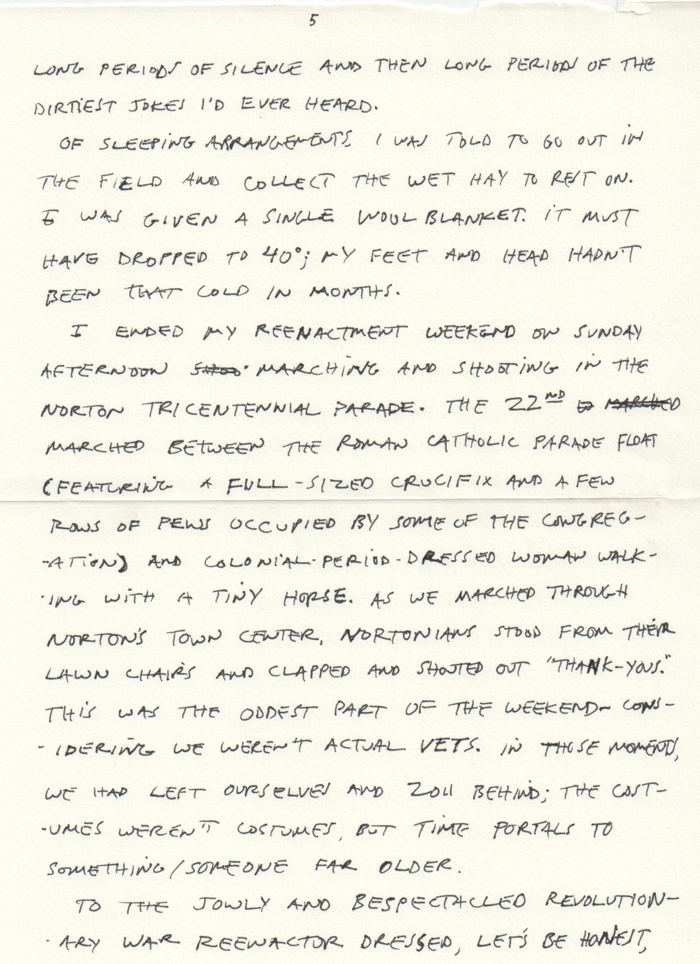 5
LONG PERIODS OF SILENCE AND THEN LONG PERIODS OF THE
DIRTIEST JOKES I'D EVER HEARD.
OF SLEEPING ARRANGEMENTS I WAS TOLD TO GO OUT IN
THE FIELD AND COLLECT THE WET HAY TO REST ON.
I WAS GIVEN A SINGLE WOOL BLANKET. IT MUST
HAVE DROPPED TO 40°; MY FEET AND HEAD HADN'T
BEEN THAT COLD IN MONTHS.
I ENDED MY REENACTMENT WEEKEND ON SUNDAY
AFTERNOON MARCHING AND SHOOTING IN THE
NORTON TRICENTENNIAL PARADE. THE 22ND MARCHED
MARCHED BETWEEN THE ROMAN CATHOLIC PARADE FLOAT
(FEATURING A FULL-SIZED CRUCIFIX AND A FEW
ROWS OF PEWS OCCUPIED BY SOME OF THE CONGREG-
-ATION) AND COLONIAL-PERIOD-DRESSED WOMAN WALK-
-ING WITH A TINY HORSE. AS WE MARCHED THROUGH
NORTON'S TOWN CENTER, NORTONIANS STOOD FROM THEIR
LAWN CHAIRS AND CLAPPED AND SHOUTED OUT "THANK-YOUS."
THIS WAS THE ODDEST PART OF THE WEEKEND- CONS-
-IDERING WE WEREN'T ACTUAL VETS. IN THOSE MOMENTS,
WE HAD LEFT OURSELVES AND 2011 BEHIND; THE COST-
-UMES WEREN'T COSTUMES, BUT TIME PORTALS TO
SOMETHING/SOMEONE FAR OLDER.
TO THE JOWLY AND BESPECTACLED REVOLUTION-
-ARY WAR REENACTOR DRESSED, LET'S BE HONEST,